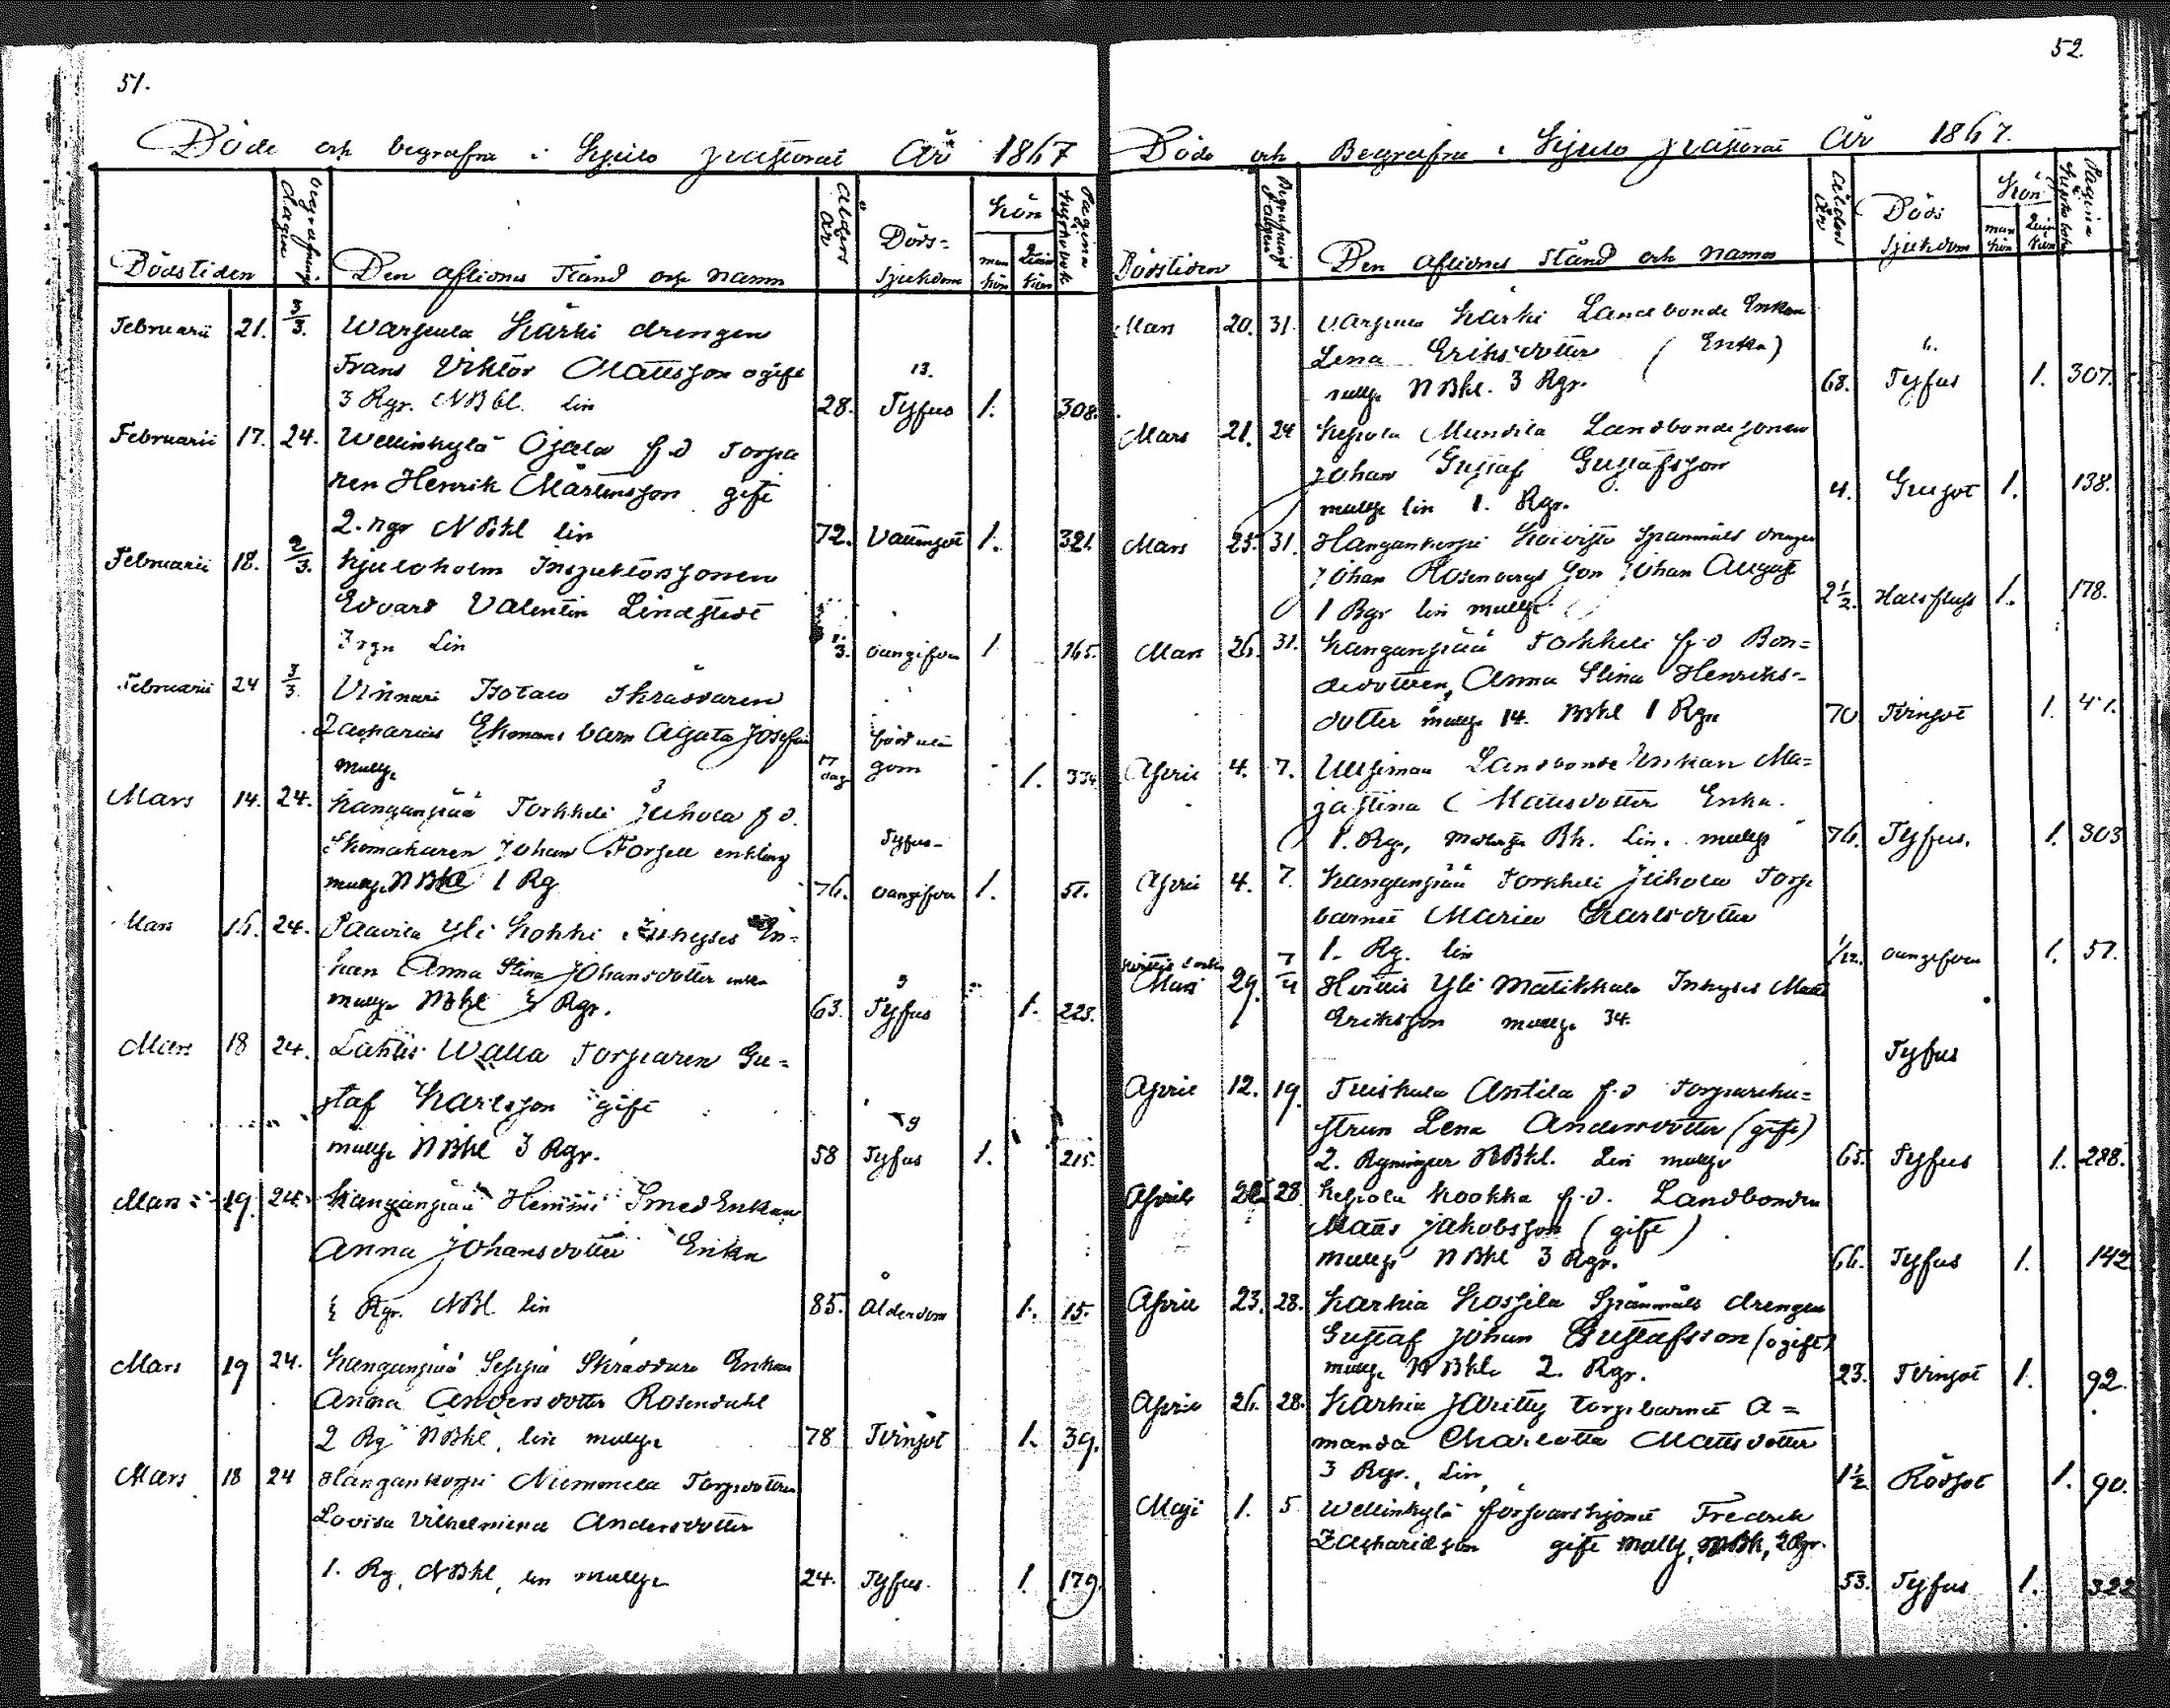 51.
Döde och begrafna i Kjulo pastorat År 1867
Dödstiden
Begrafnings dagen
Den aflidnes Stånd och namn
Ålders År
Döds-
sjukdom
Kön
man kön
Quin kön
Pagina i Kyrkoboken
Februarii 21. 3/3. Warpula Kärki drengen
Frans Viktor Mattsson ogift 13.
3 Rgr. NBkl. lin 28. Tyfus 1. 308.
Februarii 17. 24. Wellinkylä Ojala f.d Torpa
ren Henrik Mårtensson gift
2. rgr NBkl lin 72. Vattusot 1. 321.
Februarii 18. 2/3. Kjuloholm Inspektors sonen
Edvard Valentin Lindstedt
3 rgr Lin 3. oangifven 1 165.
Februarii 24 3/3. Vinnari Isotalo Skräddaren
Zacharias Ekmans barn Agata Josefin
mullg. 17 dag 1. 334
Mars 14. 24. Kanganpää Torkkeli Juhola f.d.
Skomakaren Johan Forsell enkling Tyfus-
mullg. NBkl 1 Rg 76. oangifven 1. 51.
Mars 16. 24. Paavila Yli Kokki Inhyses En-
kan Anna Stina Johansdotter enka 9
mullg. NBkl Rgr. 63. Tyfus 1. 223.
Mars 18 24. Lattis Walla Torparen Gu-
staf Karlsson gift 9
mullg NBkl 3 Rgr. 58 Tyfus 1. 215.
Mars 19. 24. Kanganpää Hemmi Smed Enkan
Anna Johansdotter Enka
Rgr. NBl. lin 85. Ålderdom 1. 15.
Mars 19 24. Kanganpää Seppä Skräddare Enkan
Anna Andersdotter Rosendahl
2 Rg NBkl, lin mullg. 78 Tvinsot 1. 39.
Mars 18 24 Hangankorpi Niemmela Torpdottren
Lovisa Vilhelmiena Andersdotter
1. Rg, NBkl, lin mullg. 24. Tyfus. 1. 179.
52.
Döde och Begrafne i Kjulo pastorat År 1867.
Dödstiden
Begrafnings dagen
Den aflidnes Stånd och namn
Ålders År
Döds
sjukdom
Kön
man kön
Quin kön
Pagina i Kyrkoboken
Mars 20. 31. Warpula Kärki Landbonde Enkan
Lena Eriksdotter (Enka)
mullg. NBkl. 3 Rgr. 68. Tyfus 1. 307.
Mars 21. 24 Kepola Mundila Landbonde sonen
Johan Gustaf Gustafsson
mullg. lin 1. Rgr. 4. Gulsot 1. 138.
Mars 25. 31. Hangankorpi Koivisto Spannmåls drengen
Johan Rosenbergs son Johan August
1 Rgr lin mullg. 2½. Halsfluss 1. 178.
Mars 26. 31. Kanganpää Torkkeli f.d Bon-
dedottren, Anna Stina Henriks-
dotter mullg. 14. NBkl 1 Rgr 70 Tvinsot 1. 41.
April 4. 7. Uusimaa Landbonde Enkan Ma-
ja Stina Mattsdotter Enka.
1. Rgr, Bk. Lin. mullg 76. Tyfus. 1. 303
April 4. 7. Kanganpää Torkkeli Juhola Torp
barnet Maria Karlsdotter
1. Rg. lin 1/12. oangifven 1. 57.
Mars 29. 7/4 Hvittis Yli Mattikkala Inhyses Matts
Eriksson mullg. 34.
Tyfus
April 12. 19. Tuiskula Antila f.d Torparehu-
strun Lena Andersdotter (gift)
2. Rgningar NBkl. Lin mullgr 65. Tyfus 1. 288.
April 22 28 Kepola Kookka f.d. Landbonden
Matts Jakobsson (gift)
mullg. NBkl 3 Rgr. 66. Tyfus 1. 142
April 23. 28. Karhia Koskila Spannmåls drengen
Gustaf Johan Gustafsson (ogift)
mullg. NBkl. 2. Rgr. 23. Tvinsot 1. 92.
April 26. 28. Karhia Järitty torpbarnet A=
manda Charlotta Mattsdotter
3 Rgr., Lin, 1½ Rödsot 1. 90.
Maji 1. 5 Wellinkylä försvarshjonet Fredrik
Zachariasson gift mullg, NBk, 2 Rgr.
53. Tyfus 1. 322